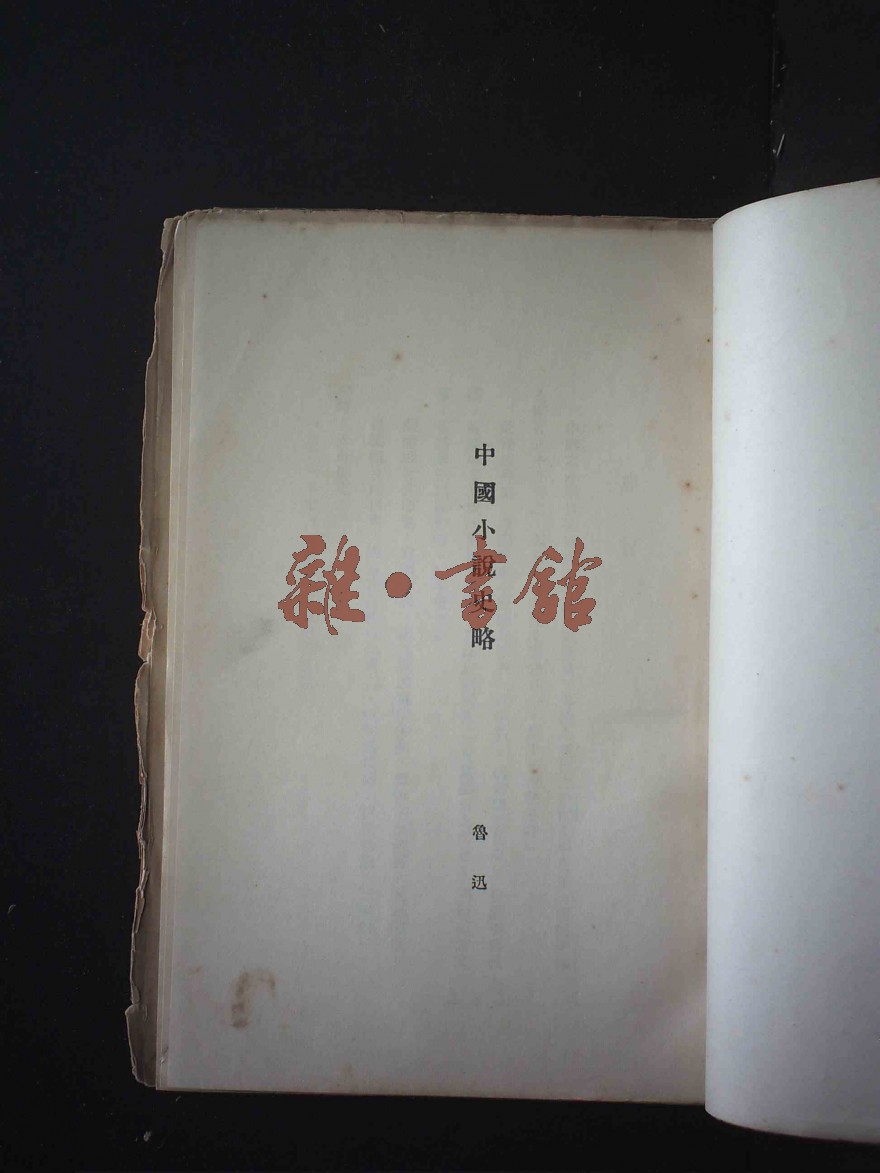 中國小說史略
魯迅
雜·書館